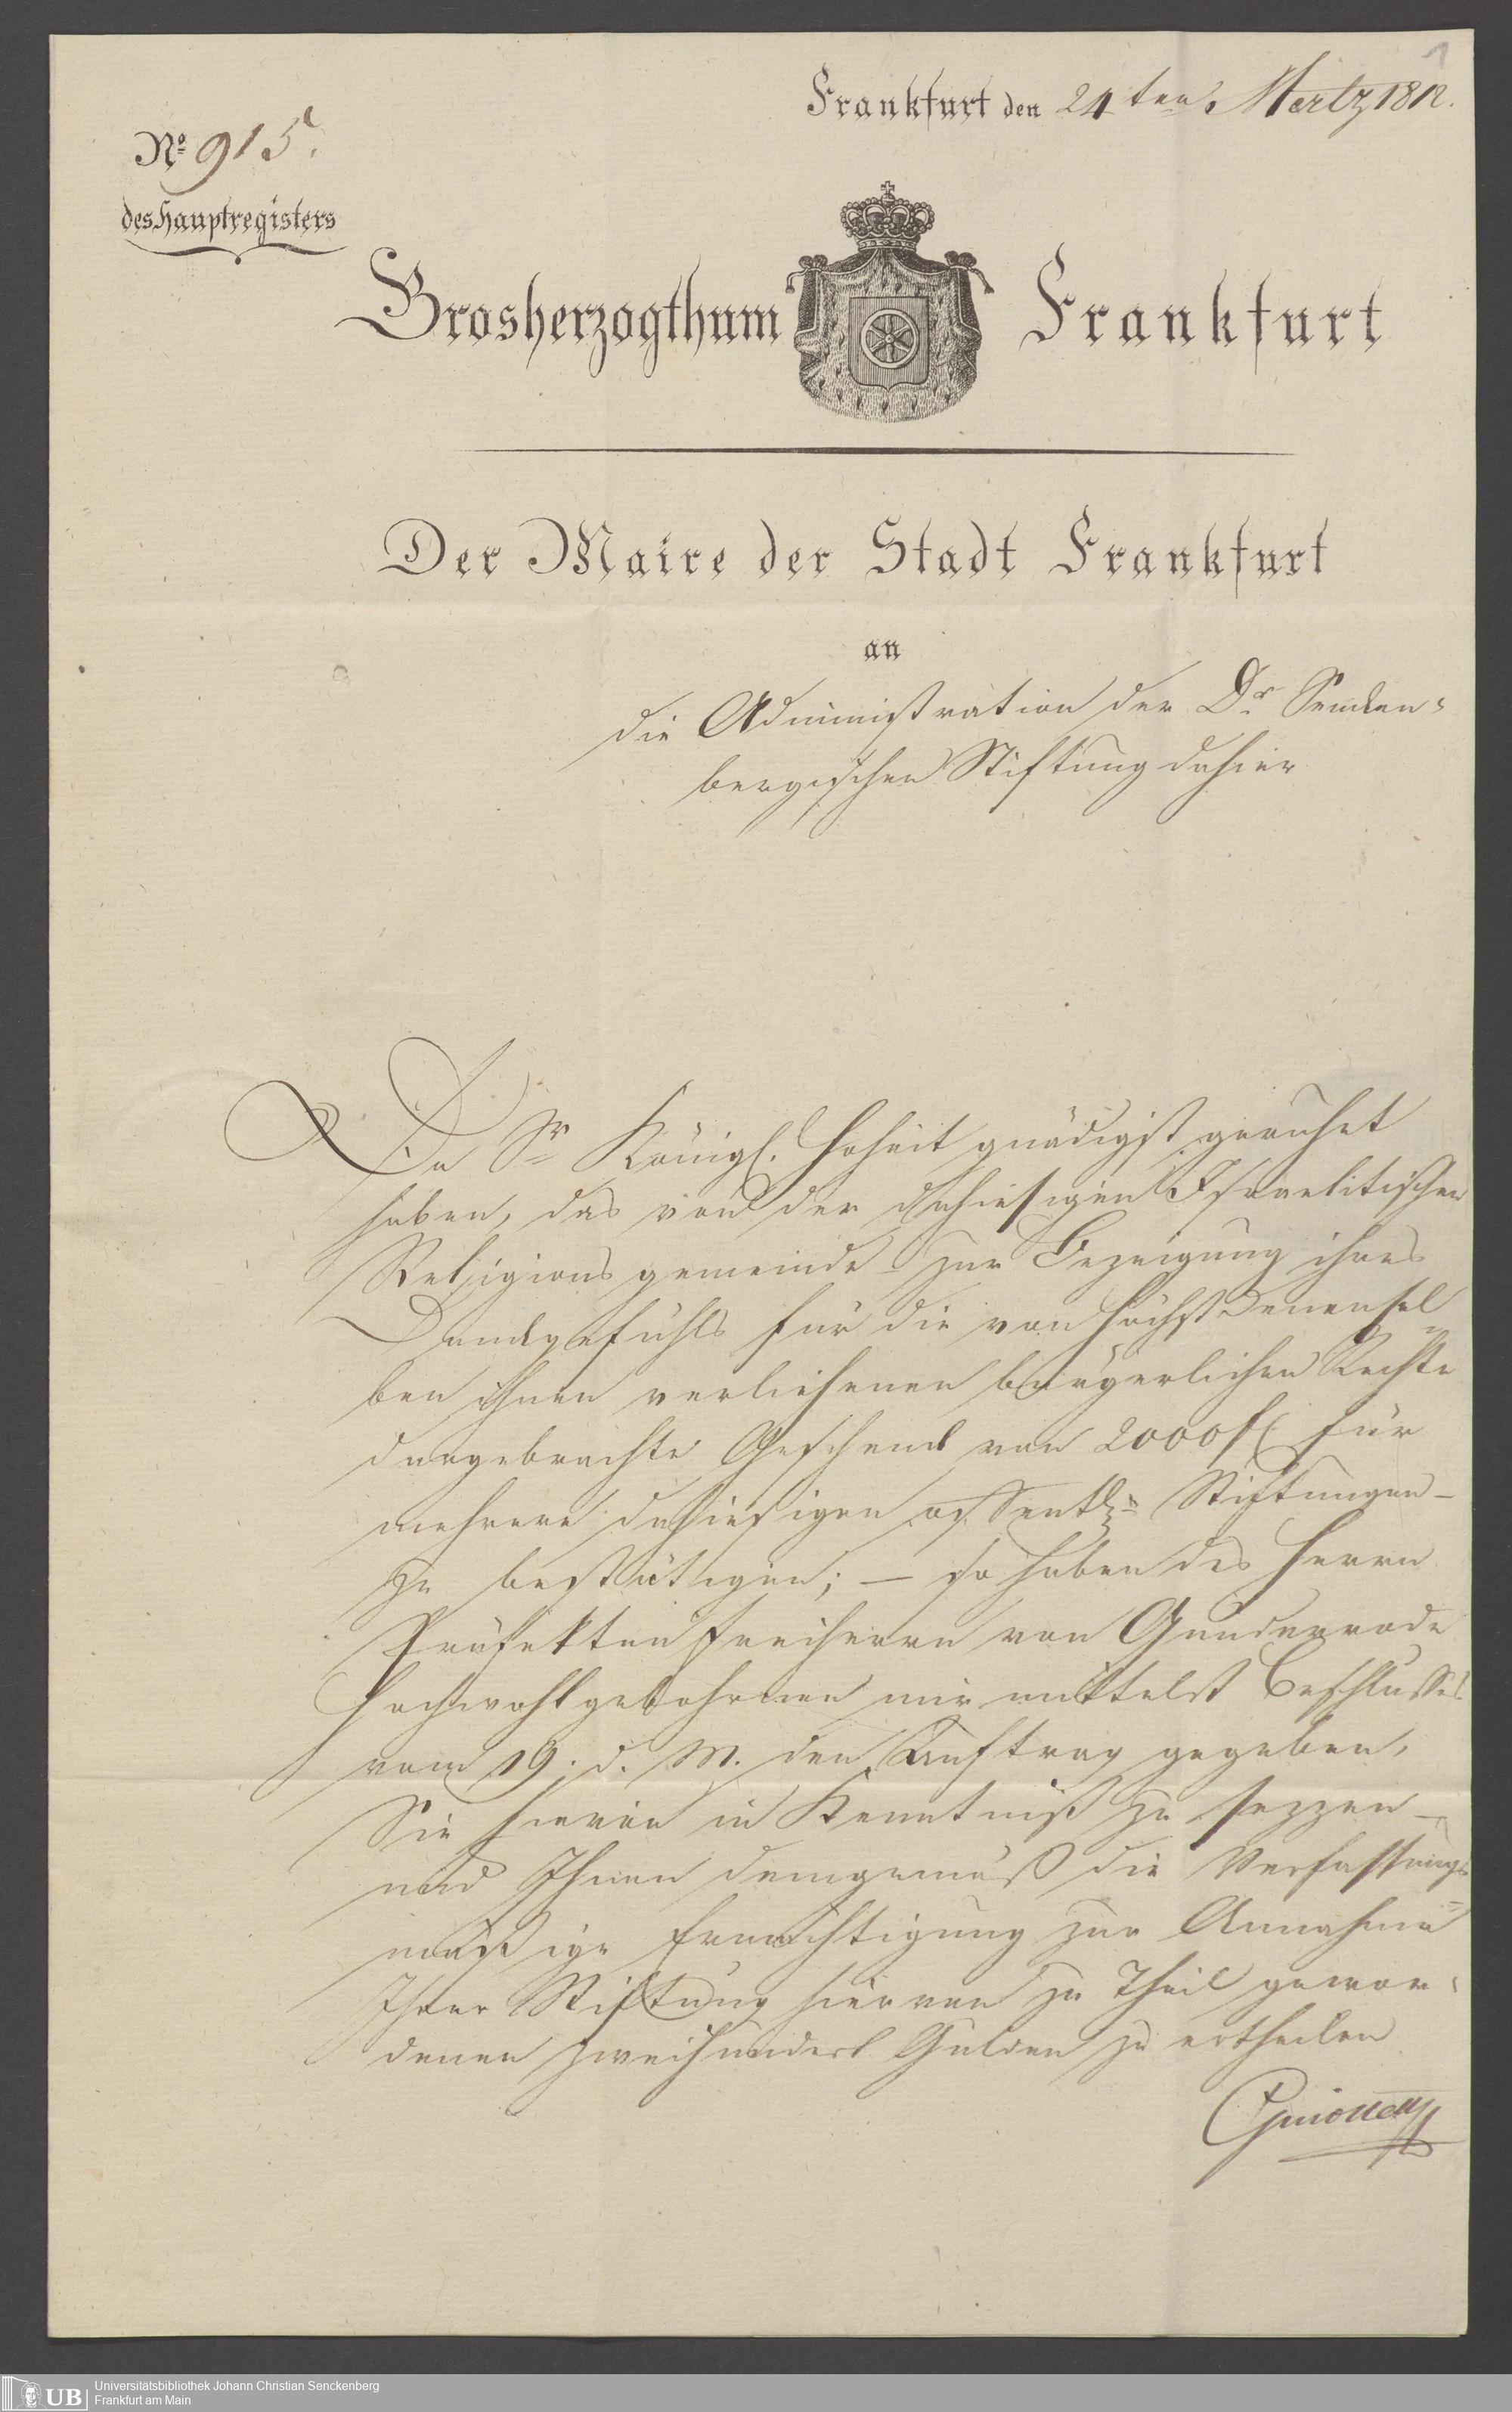 1
Frankfurt den 24ten Mertz 1812.
No 915.
des Hauptregisters
Grosherzogthum Frankfurt
Der Maire der Stadt Frankfurt
an
die Administration der Dr Senken-
bergischen Stiftung dahier
Da Sr Königl. Hoheit gnädigst geruhet
haben, das von der dahiesigen Israelitischen
Religions gemeinde zur Bezeigung ihres
Dankgefühls für die von Höchst Denensel-
ben ihnen verliehenen bürgerlichen Rechte
dargebrachte Geschenk von 2000 fl für
mehrere dahiesigen öffentl. Stiftungen –
zu bestätigen; – so haben des Herrn
Präfekten Freiherrn von Günderrode
Hochwohlgebohrnen mir mittelst Beschlusses
vom 19. d. M. den Auftrag gegeben,
Sie hievon in Kenntniß zu sezzen –
und Ihnen demgemäß die Verfassungs-
mäßige Ermächtigung zur Annahme
Ihrer Stiftung hiervon zu Theil gewor-
denen zweihundert Gulden zu ertheilen
Guiollett
UB
Universitätsbibliothek Johann Christian Senckenberg
Frankfurt am Main